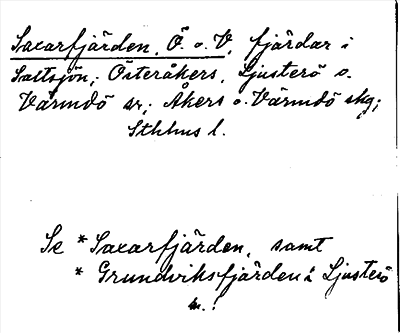 Saxarfjärden, Ö. o. V., fjärdar i
Saltsjön; Österåkers, Ljusterö o.
Värmdö sr; Åkers o. Värmdö skg;
Sthlms l.
Se *Saxarfjärden, samt
* Grundviksfjärden i Ljusterö
sn.!